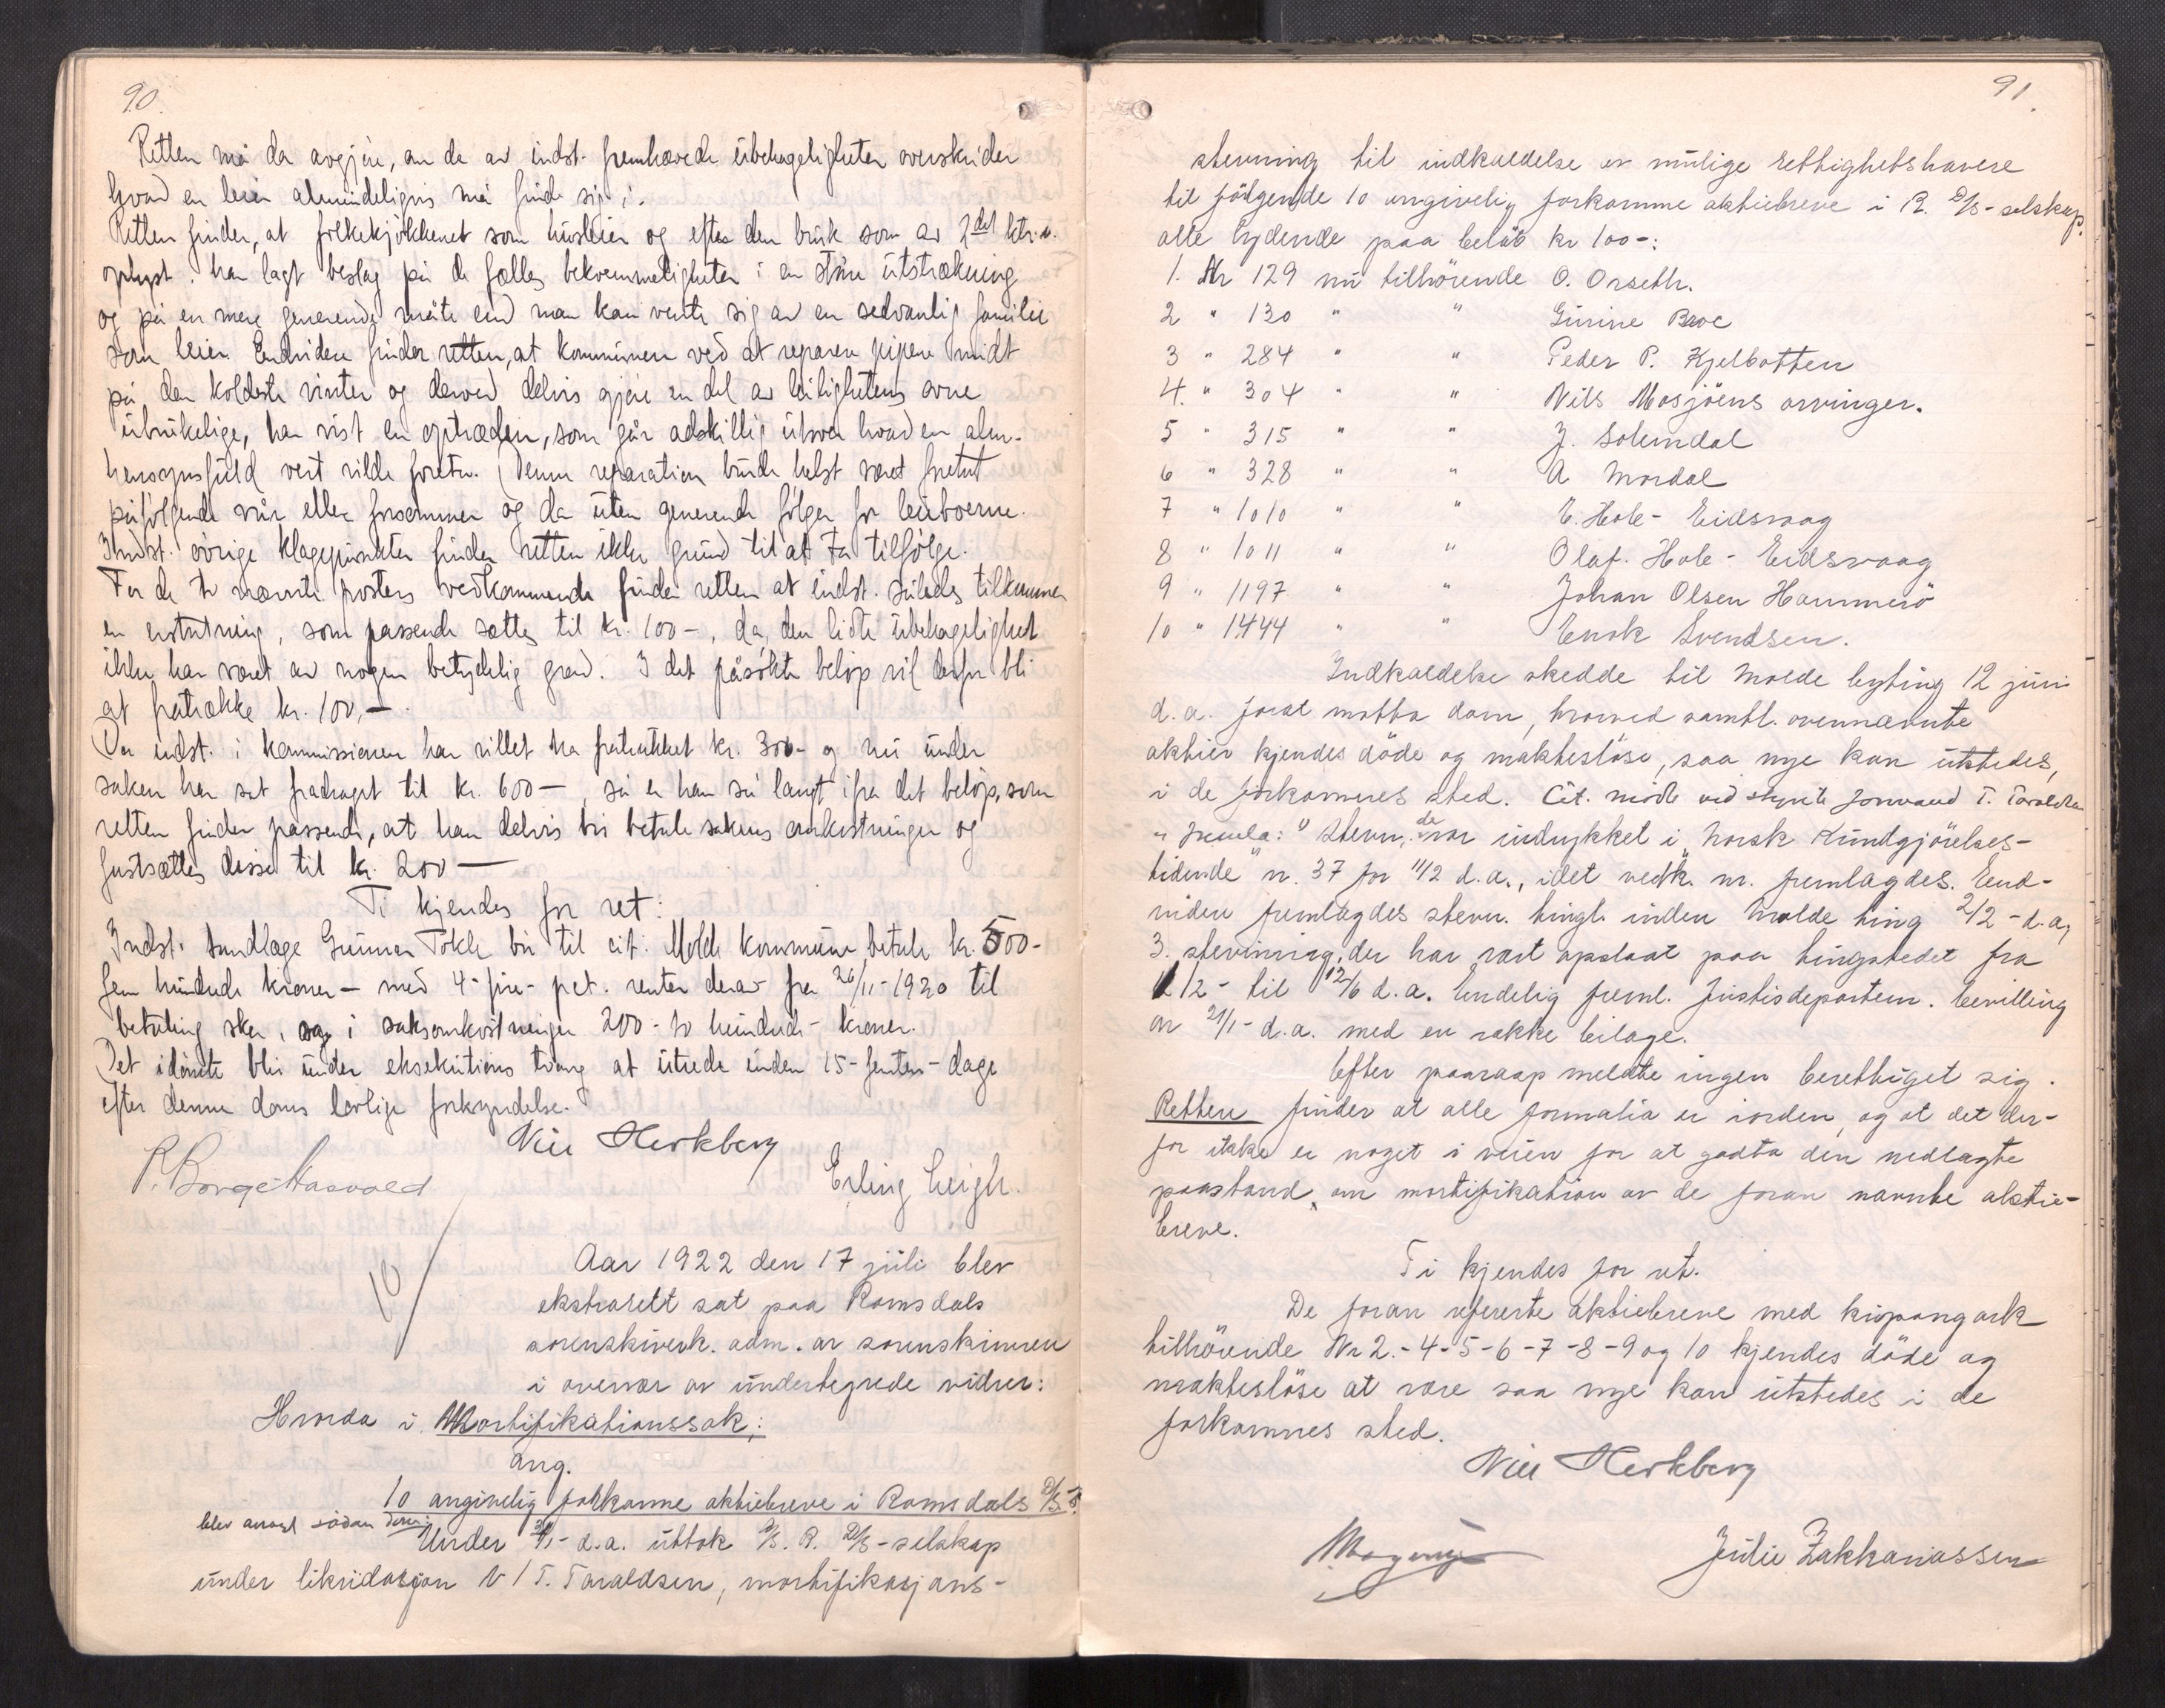 90.
Retten må da avgjøre, om de av indst. fremhævede ubehageligheter overskrider
hvad en leier almindeligvis må finde sig i.
Retten finder, at folkekjøkkenet som husleier og efter den bruk som av 2det
oplyst har lagt beslag på de fælles bekvemmeligheter i en større utstrækning
og på en mere generende måte end man kan vente sig av en sedvanlig familie
som leier. Endvidere finder retten, at kommunen ved at reparere pipene midt
på den koldeste vinter og derved delvis gjøre en del av leilighetens ovne
ubrukelige, har vist en optræden, som går adskillig utover hvad en alm.
hensynsfuld vert vilde foreta. Denne reparation burde helst været foretat
påfølgende vår eller forsommer og da uten generende følger for leieboerne.
Indst. øvrige klagepunkter finder retten ikke grund til at ta tilfølge.
For de to nævnte posters vedkommende finder retten at indst. således tilkommer
en erstatning, som passende sættes til kr. 100 –, da den lidte ubehagelighet
ikke har været av nogen betydelig grad. I det påsøkte beløp vil derfor bli
at fratrække kr. 100,–.
Da indst. i kommissionen har villet ha fratrukket kr. 300– og nu under
saken har sat fradraget til kr. 600 –, så er han så langt ifra det beløp, som
retten finder passende, at han delvis bør betale sakens omkostninger og
fastsættes disse til kr. 200 –
Ti kjendes for ret:
Indst. tandlæge Gunnar Tokle bør til cit. Molde kommune betale kr. 500-
fem hundrede kroner – med 4 - fire - pct. renter derav fra 26/11-1920 til
betaling sker, og i saksomkostninger 200 - to hundrede - kroner.
Det idømte blir under eksekutions tvang at utrede inden 15 - femten - dage
efter denne doms lovlige forkyndelse.
Herkberg
P. Borge Hasvold
Erling Leigh.
10
Aar 1922 den 17 juli blev
ekstrarett sat paa Romsdals
sorenskiverk. adm. av sorenskriveren
i overvær av undertegnede vidner:
Hvorda i Mortifikationssak:
ang.
10 angivelig forkomne aktiebreve i Romsdals D/S-S.
blev avsagt sådan dom:
Under d.a. uttok A/S. R. D/S-selskap
under likvidasjon v/ T. Taraldsen, mortifikasjons-
91.
stevning til indkaldelse av mulige rettighetshavere
til følgende 10 angivelig forkomne aktiebreve i R. D/S-selskap.
alle lydende paa beløb kr 100-:
1. Nr 129 nu tilhörende O. Orseth.
2 " 130 " " Gurine Broe
3 " 284 " " Peder P. Kjelbotten
4. " 304 " " Nils Mosjöens arvinger.
5 " 315 " " J. Solemdal
6 " 328 " " A Mordal
7 " 1010 " " E. Hole - Eidsvaag
8 " 1011 " " Olaf. Hole - Eidsvaag
9 " 1197 " " Johan Olsen Hammerö
10 " 1444 " " Enok Svendsen.
Indkaldelse skedde til Molde byting 12 juni
d.a. forat motta dom, hvorved samtl. ovennævnte
aktier kjendes döde og makteslöse, saa nye kan utstedes,
i de forkomnes sted. Cit. møtte ved styrets formand T. Taraldsen
Stevn. de var indrykket i "Norsk Kundgjörelses-
tidende" nr. 37 for 11/2 d.a., idet vedk. nr. fremlagdes. End-
videre fremlagdes stevn. tingl. inden Molde ting 2/2 - d.a,
3. stevning, der har vært opslaat paa tingstedet fra
2/2 - til 12/6 d.a. Endelig freml. Justisdepartem. bevilling
av 21/1- d.a. med en række bilage.
Efter paaraap meldte ingen berettiget sig.
Retten finder at alle formalia er iorden, og at det der-
for ikke er noget i veien for at godta den nedlagte
paastand om mortifikation av de foran nævnte aktie-
breve.
Ti kjendes for ret.
De foran refererte aktiebreve med kupongark
tilhörende Nr 2.-4-5-6-7-8-9 og 10 kjendes döde og
makteslöse at være saa nye kan utstedes i de
forkomnes sted.
Herkberg
Julie Zakkariassen